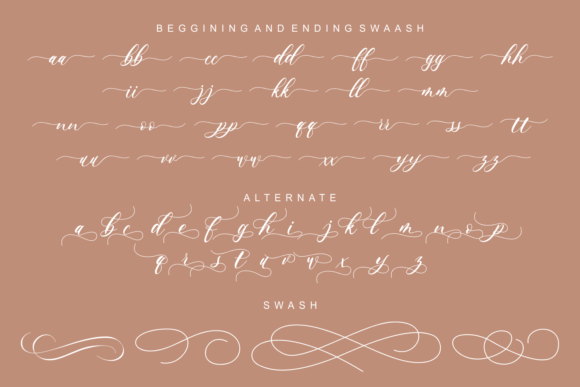 BEGGINING AND ENDING SWAASH
aa bb cc dd ff gg hh
ii jj kk ll mm
nn oo pp qq rr ss tt
uu vv ww xx yy zz
ALTERNATE
a b c d e f g h i j k l m n o p
q r s t u v w x y z
SWASH